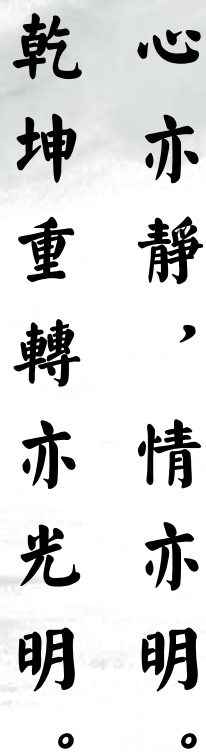 心亦靜，情亦明。
乾坤重轉亦光明。